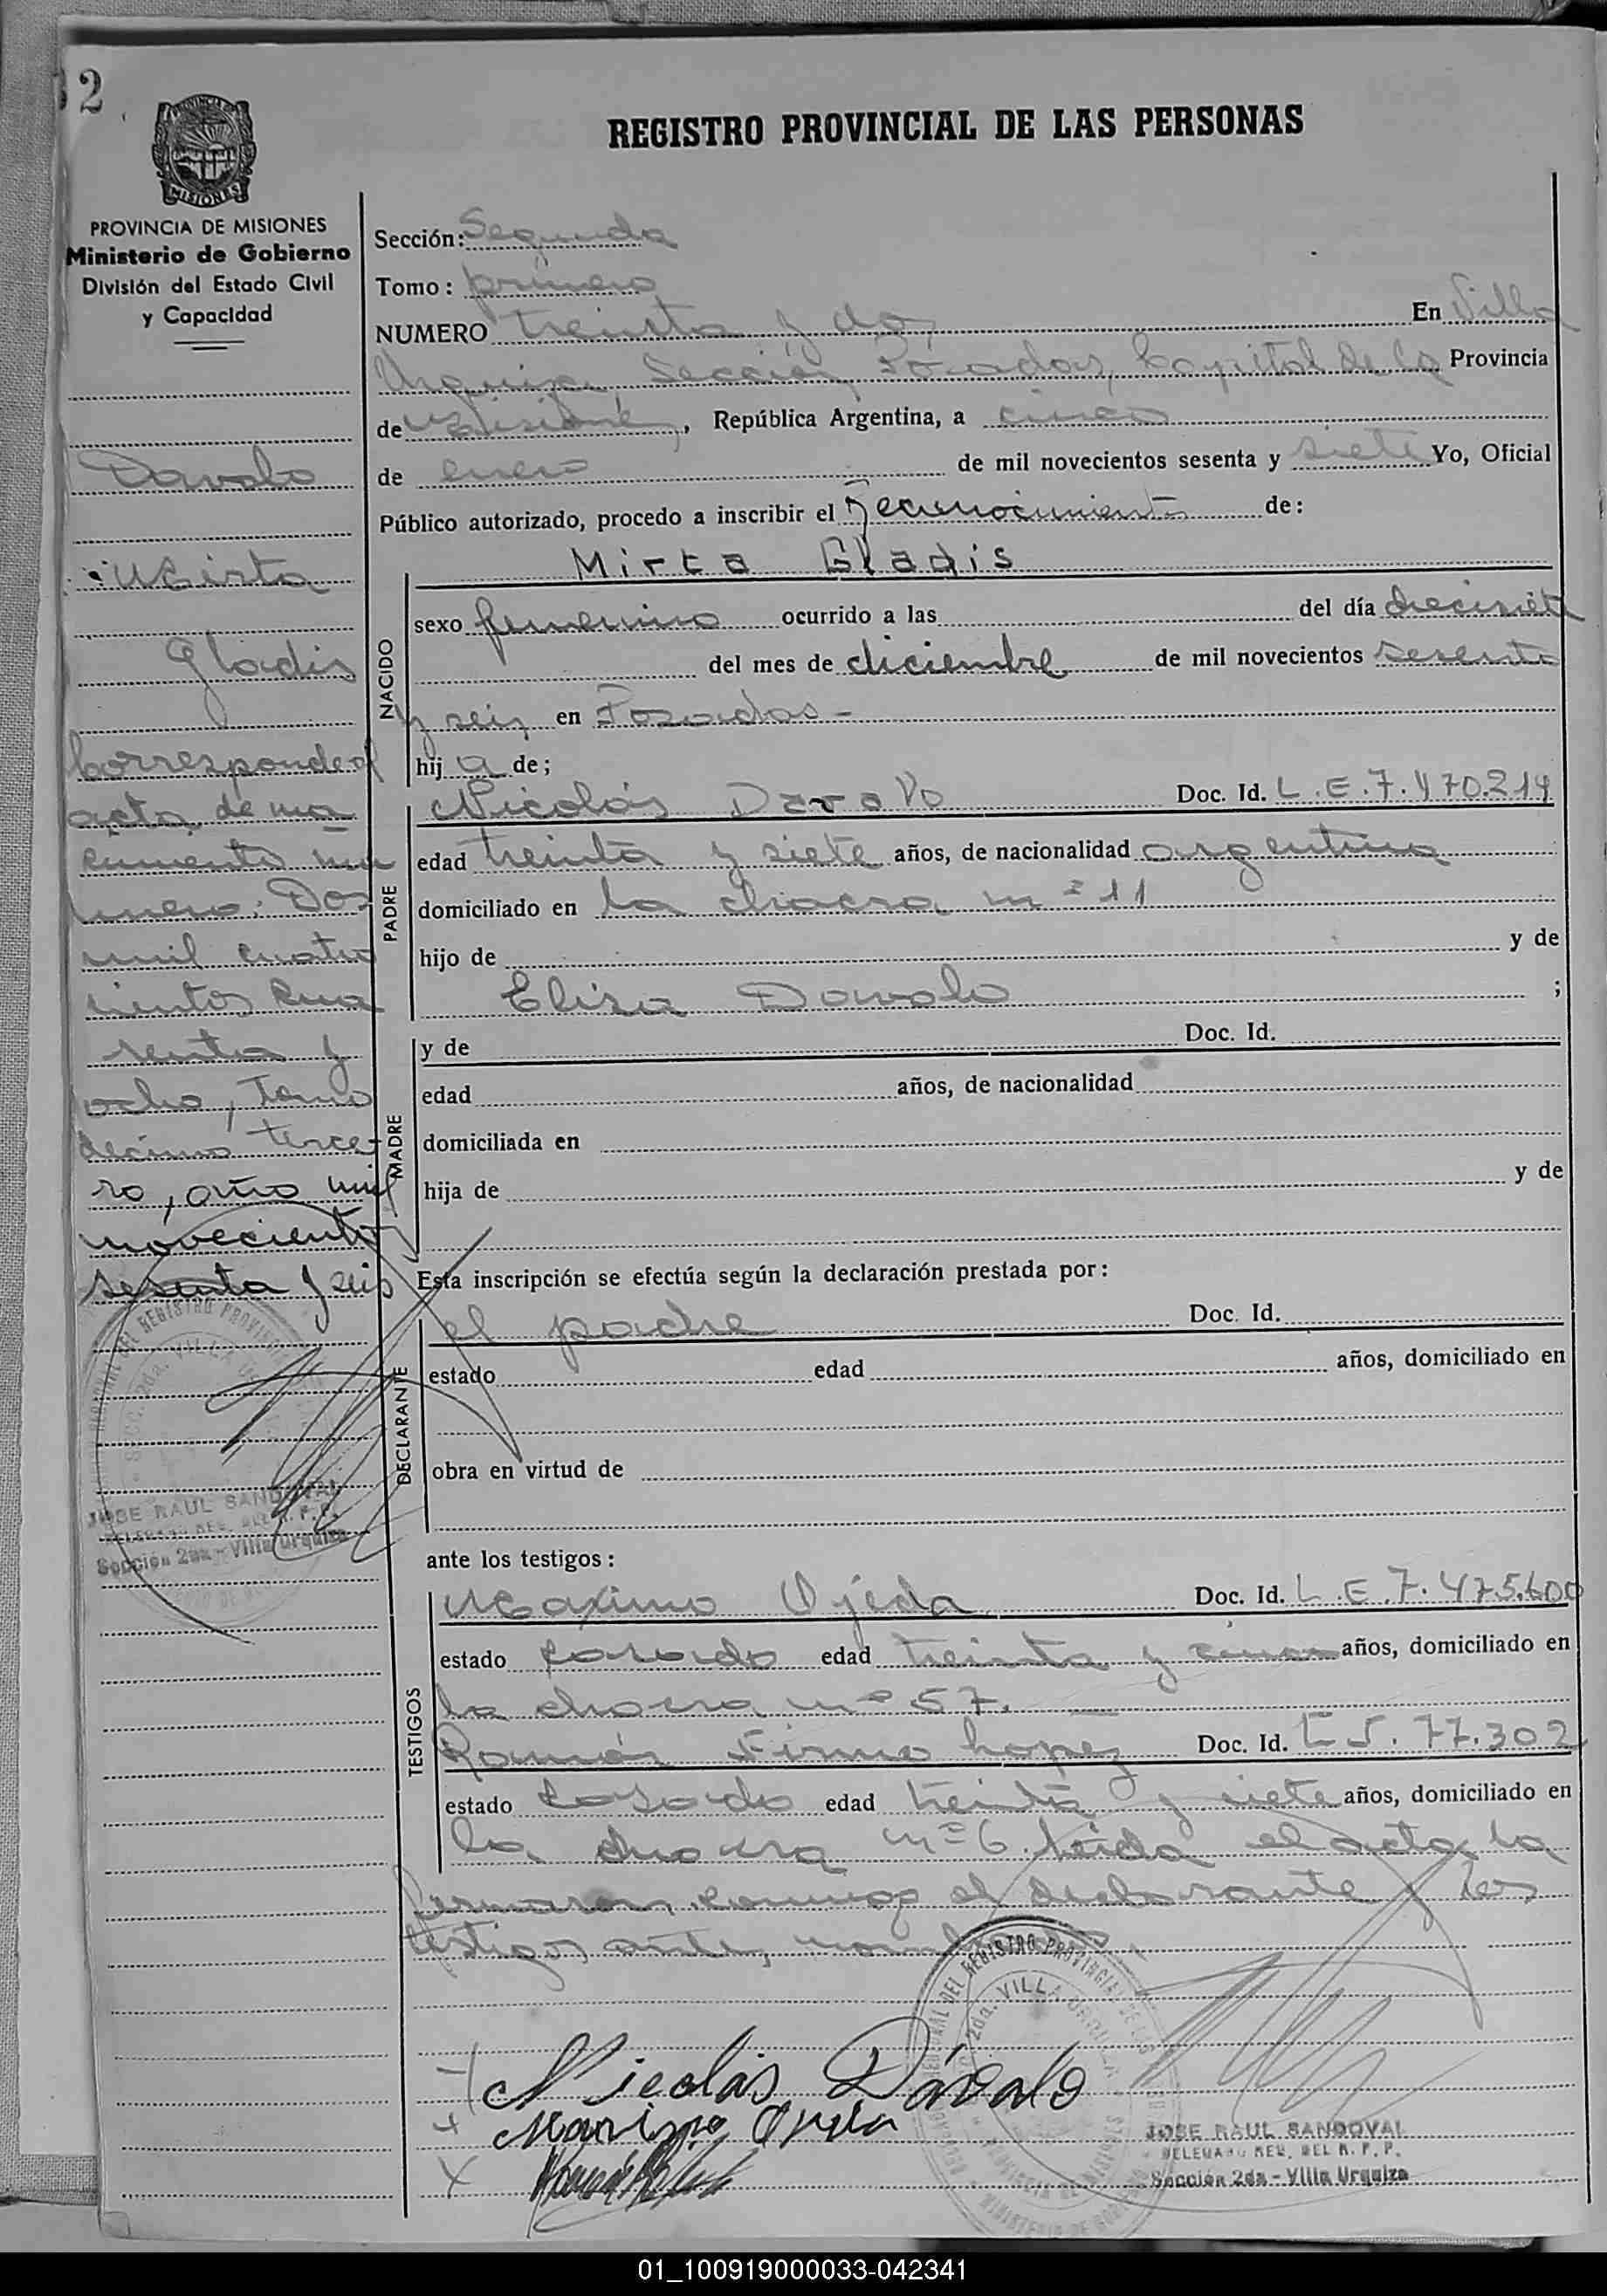 32
MISIONES
PROVINCIA DE MISIONES
Ministerio de Gobierno
División del Estado Civil
y Capacidad
Davalo
Mirta
Gladis
Corresponde al
acta de na
cimiento nú
mero: Dos
mil cuatro
cientos cua
renta y
ocho, Tomo
décimo terce-
ro, año mil
novecientos
sesenta y seis
JOSE RAUL SANDOVAL
DELEGADO REG. DEL R. P. P.
Sección 2da - Villa Urquiza
REGISTRO PROVINCIAL DE LAS PERSONAS
Sección: Segunda
Tomo: primero
NUMERO treinta y dos, En Villa
Urquiza, Sección Posadas, Capital de la Provincia
de Misiones, República Argentina, a cinco
de enero de mil novecientos sesenta y siete Yo, Oficial
Público autorizado, procedo a inscribir el Reconocimiento de:
Mirta Gladis
NACIDO
sexo femenino ocurrido a las del día diecisiete
del mes de diciembre de mil novecientos sesenta
y seis en Posadas-
hija de;
PADRE
Nicolás Davalo Doc. Id. L.E.7.470.214
edad treinta y siete años, de nacionalidad argentina
domiciliado en la chacra nº 11
hijo de y de
Elisa Davalo ;
MADRE
y de Doc. Id.
edad años, de nacionalidad
domiciliada en
hija de y de
Esta inscripción se efectúa según la declaración prestada por:
DECLARANTE
el padre Doc. Id.
estado edad años, domiciliado en
obra en virtud de
ante los testigos:
TESTIGOS
Maximo Ojeda Doc. Id. L.E.7.475.600
estado casado edad treinta y cinco años, domiciliado en
la chacra nº 57.
Ramón Firmo Lopez Doc. Id. 77.302
estado casado edad treinta y siete años, domiciliado en
la chacra nº 6. Leida el acta la
firmaron conmigo el declarante y los
testigos antes nombrados.-
Nicolás Dávalo
Maximo Ojeda
JOSE RAUL SANDOVAL
DELEGADO REG. DEL R. P. P.
Sección 2da - Villa Urquiza
01_100919000033-042341